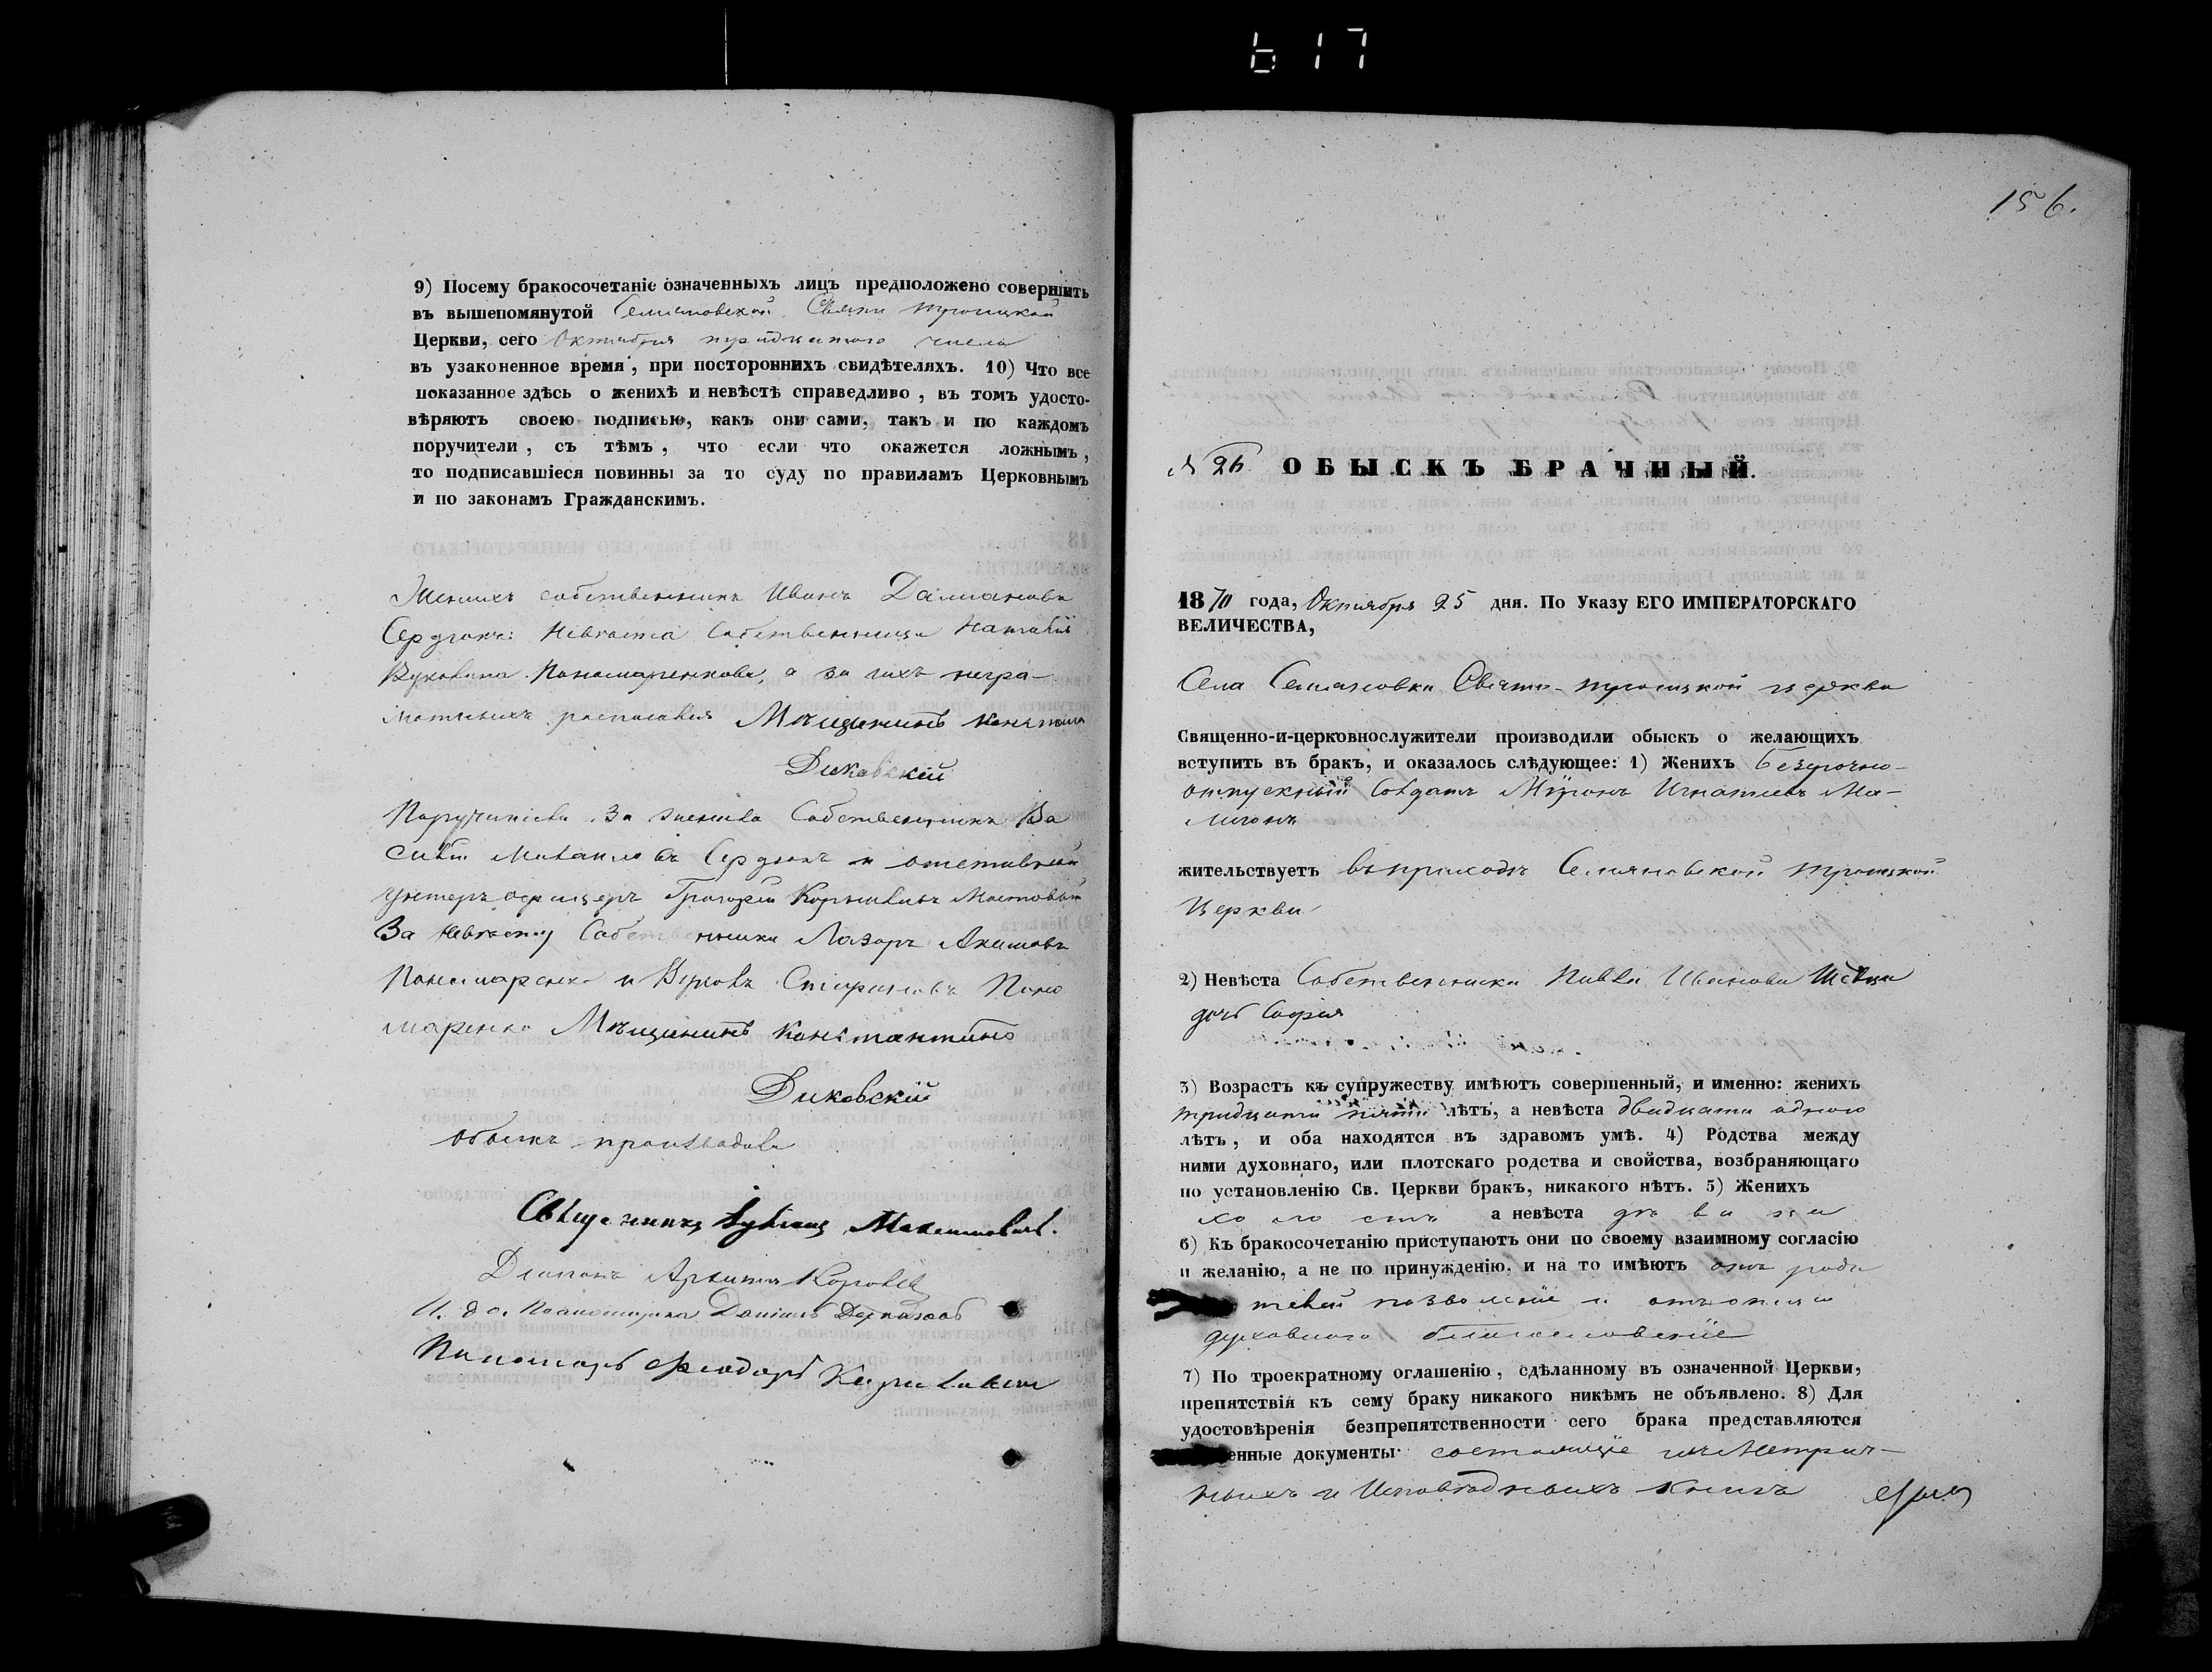 617
9) Посему бракосочетаніе означенныхъ лицъ предположено совершить
въ вышепомянутой Семеновской Свято Троицкой
Церкви, сего Октября тридцатого числа
въ узаконенное время, при постороннихъ свидѣтеляхъ. 10) Что все
показанное здѣсь о женихѣ и невѣстѣ справедливо, въ томъ удосто-
вѣряютъ своею подписью, какъ они сами, такъ и по каждомъ
поручители, съ тѣмъ, что если что окажется ложнымъ,
то подписавшіеся повинны за то суду по правиламъ Церковнымъ
и по законамъ Гражданскимъ.
Женихъ собственникъ Иванъ Даміановъ
Сердюкъ: Невѣста Собственница Наталія
Пономаренкова, а за ихъ негра-
мотныхъ росписался Мѣщанинъ
Диковскій
За жениха Собственники Ва
силій Михаиловъ Сердюкъ и отставной
унтеръ офицеръ Григорій Мостовый
За Невѣсту Собственники Лазарь Акимовъ
Пономаренко и Стефановъ Поно
маренко Мѣщанинъ Константинъ
Диковскій
Обыскъ производили
Священникъ Максимовичъ.
Діаконъ
И. д. Псаломщика Даніилъ
Пономарь Феодоръ
156.
№ 26. ОБЫСКЪ БРАЧНЫЙ.
1870 года, Октября 25 дня. По Указу ЕГО ИМПЕРАТОРСКАГО
ВЕЛИЧЕСТВА,
Села Семяновки Свято-Троицкой церкви
Священно-и-церковнослужители производили обыскъ о желающихъ
вступить въ бракъ, и оказалось слѣдующее: 1) Женихъ безсрочно-
отпускный Солдатъ Миронъ Игнатіевъ Ма-
жительствуетъ въ приходѣ Семяновской Троицкой
Церкви
2) Невѣста Собственника Павла Иванова
дочь Софія
3) Возрастъ къ супружеству имѣютъ совершенный, и именно: женихъ
тридцати пяти лѣтъ, а невѣста двадцати одного
лѣтъ, и оба находятся въ здравомъ умѣ. 4) Родства между
ними духовнаго, или плотскаго родства и свойства, возбраняющаго
по установленію Св. Церкви бракъ, никакого нѣтъ. 5) Женихъ
холостъ а невѣста дѣвица
6) Къ бракосочетанію приступаютъ они по своему взаимному согласію
и желанію, а не по принужденію, и на то имѣютъ отъ роди
телей позволеніе и отъ отца
духовного благословеніе
7) По троекратному оглашенію, сдѣланному въ означенной Церкви,
препятствія къ сему браку никакого никѣмъ не объявлено. 8) Для
удостовѣренія безпрепятственности сего брака представляются
енные документы состоящіе изъ Метрич-
ныхъ и Исповѣдныхъ Книгъ